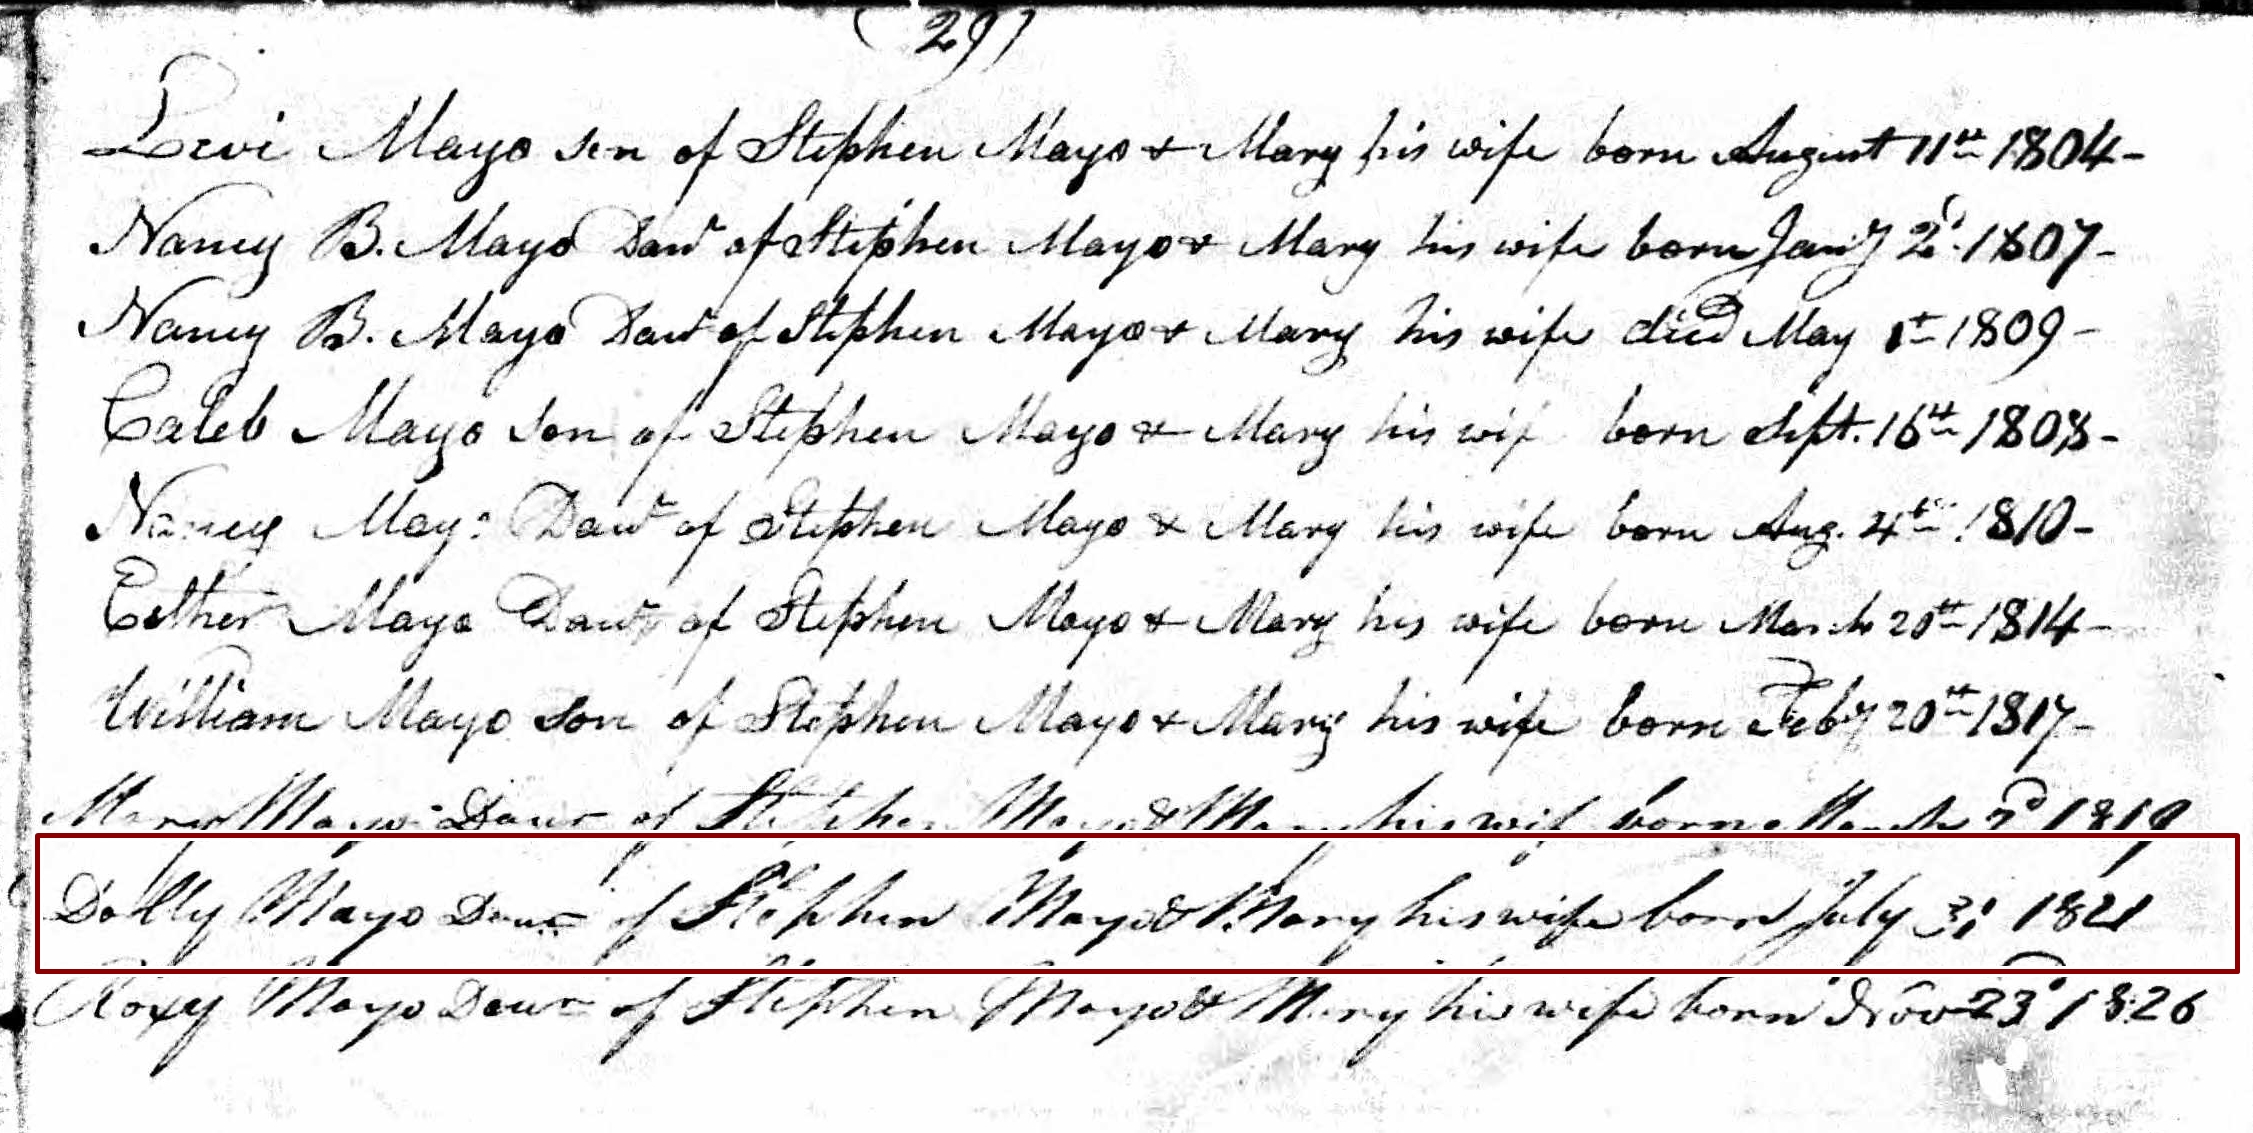 (29)
Levi Mayo son of Stephen Mayo & Mary his wife born August 11th 1804-
Nancy B. Mayo Daur of Stephen Mayo & Mary his wife born Jany 2d 1807-
Nancy B. Mayo Daur of Stephen Mayo & Mary his wife died May 1st 1809-
Caleb Mayo son of Stephen Mayo & Mary his wif born Sept. 16th 1808-
Nancy Mayo Daur of Stephen Mayo & Mary his wife born Aug. 4th 1810-
Esther Mayo Daur of Stephen Mayo & Mary his wife born March 20th 1814-
William Mayo son of Stephen Mayo & Mary his wife born Feby 20th 1817-
Mary Mayo Daur of Stephen Mayo & Mary his wif born March 1819
Dolly Mayo Daur of Stephen Mayo & Mary his wife born July 1821
Roxy Mayo Daur of Stephen Mayo & Mary his wife born Nov 23d 1826